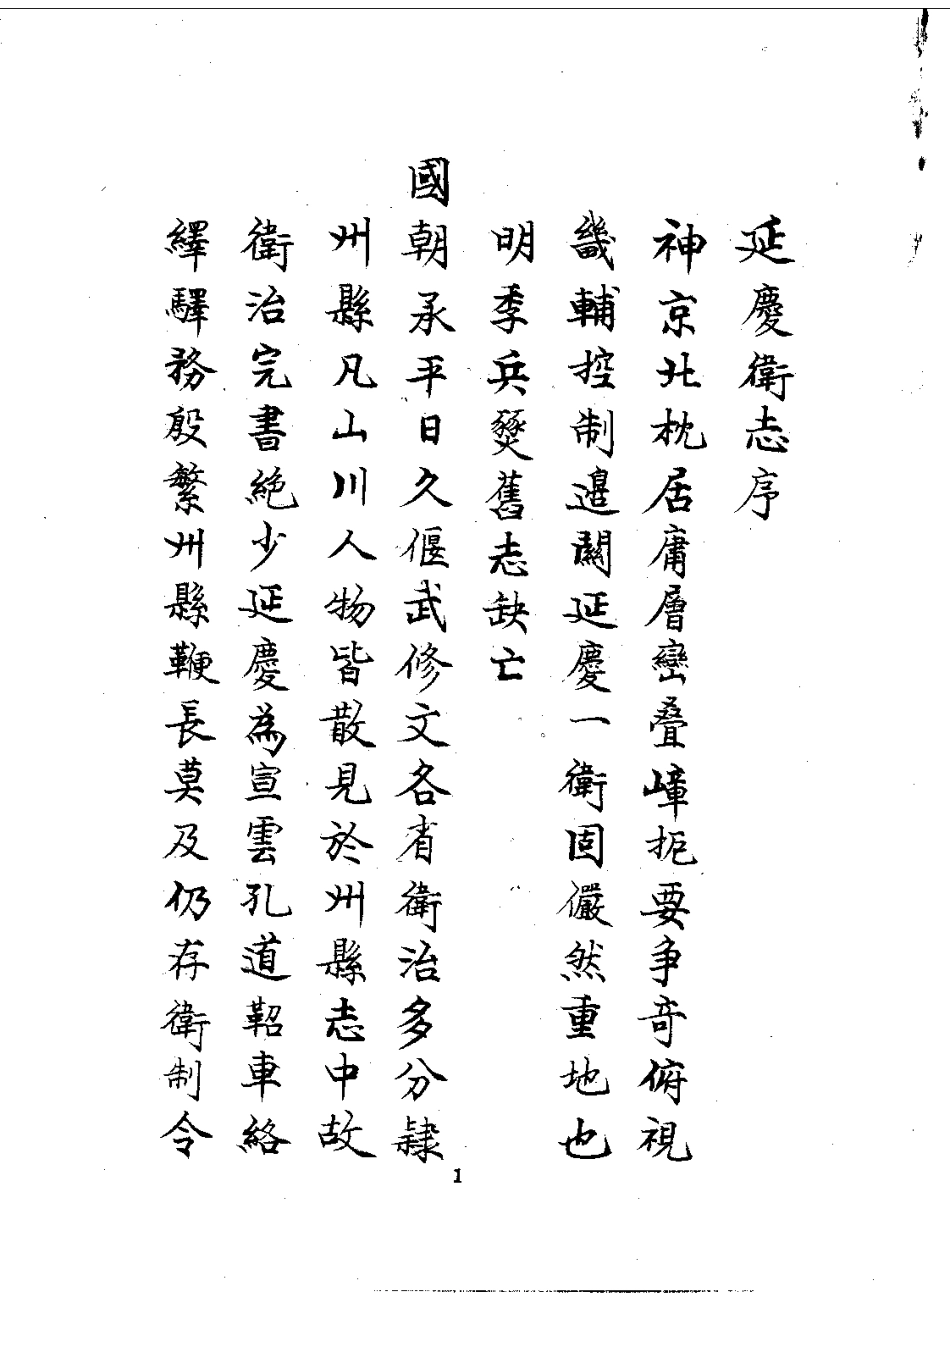 延慶衛志序
神京北枕居庸層巒疊嶂扼要争奇俯視
畿輔控制邉關延慶一衛固儼然重地也
明季兵燹舊志缺亡
國朝承平日久偃武修文各省衛治多分隸
州縣凡山川人物皆散見於州縣志中故
衛治完書絶少延慶為宣雲孔道軺車絡
繹驛務殷繁州縣鞭長莫及仍存衛制令
1